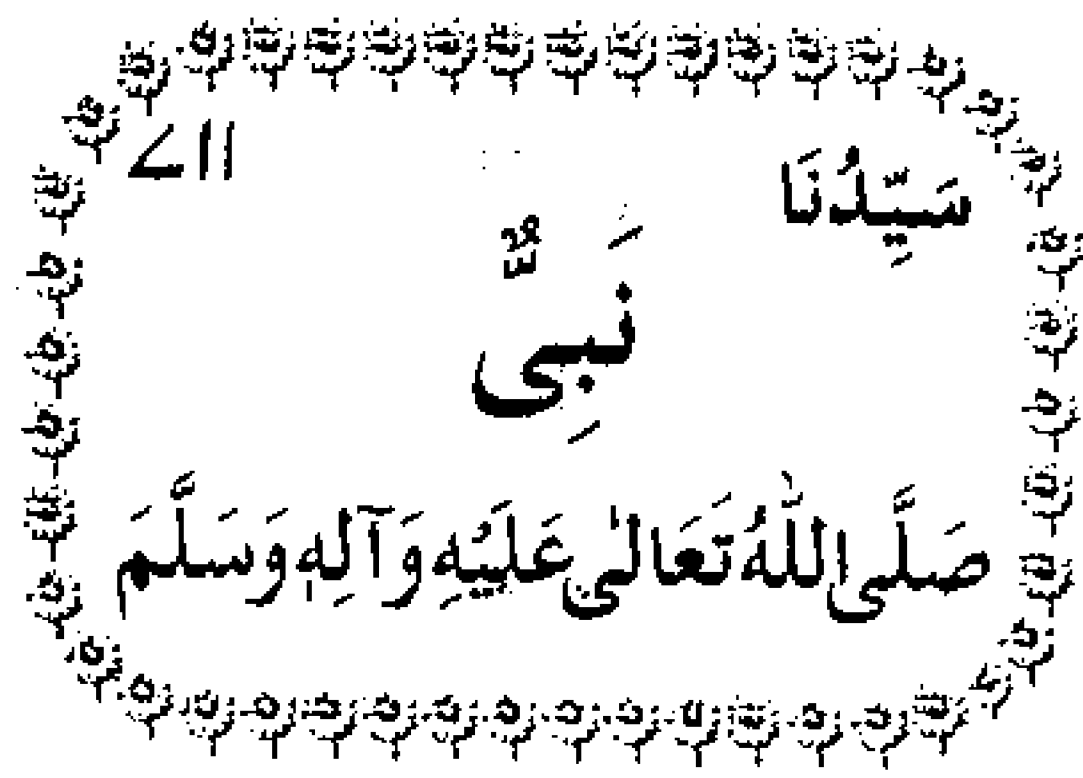 سَيِّدُنَا ۷۱۱
نَبِىٌّ
صَلَّى اللّٰهُ تَعَالٰى عَلَيْهِ وَآلِهٖ وَسَلَّمَ